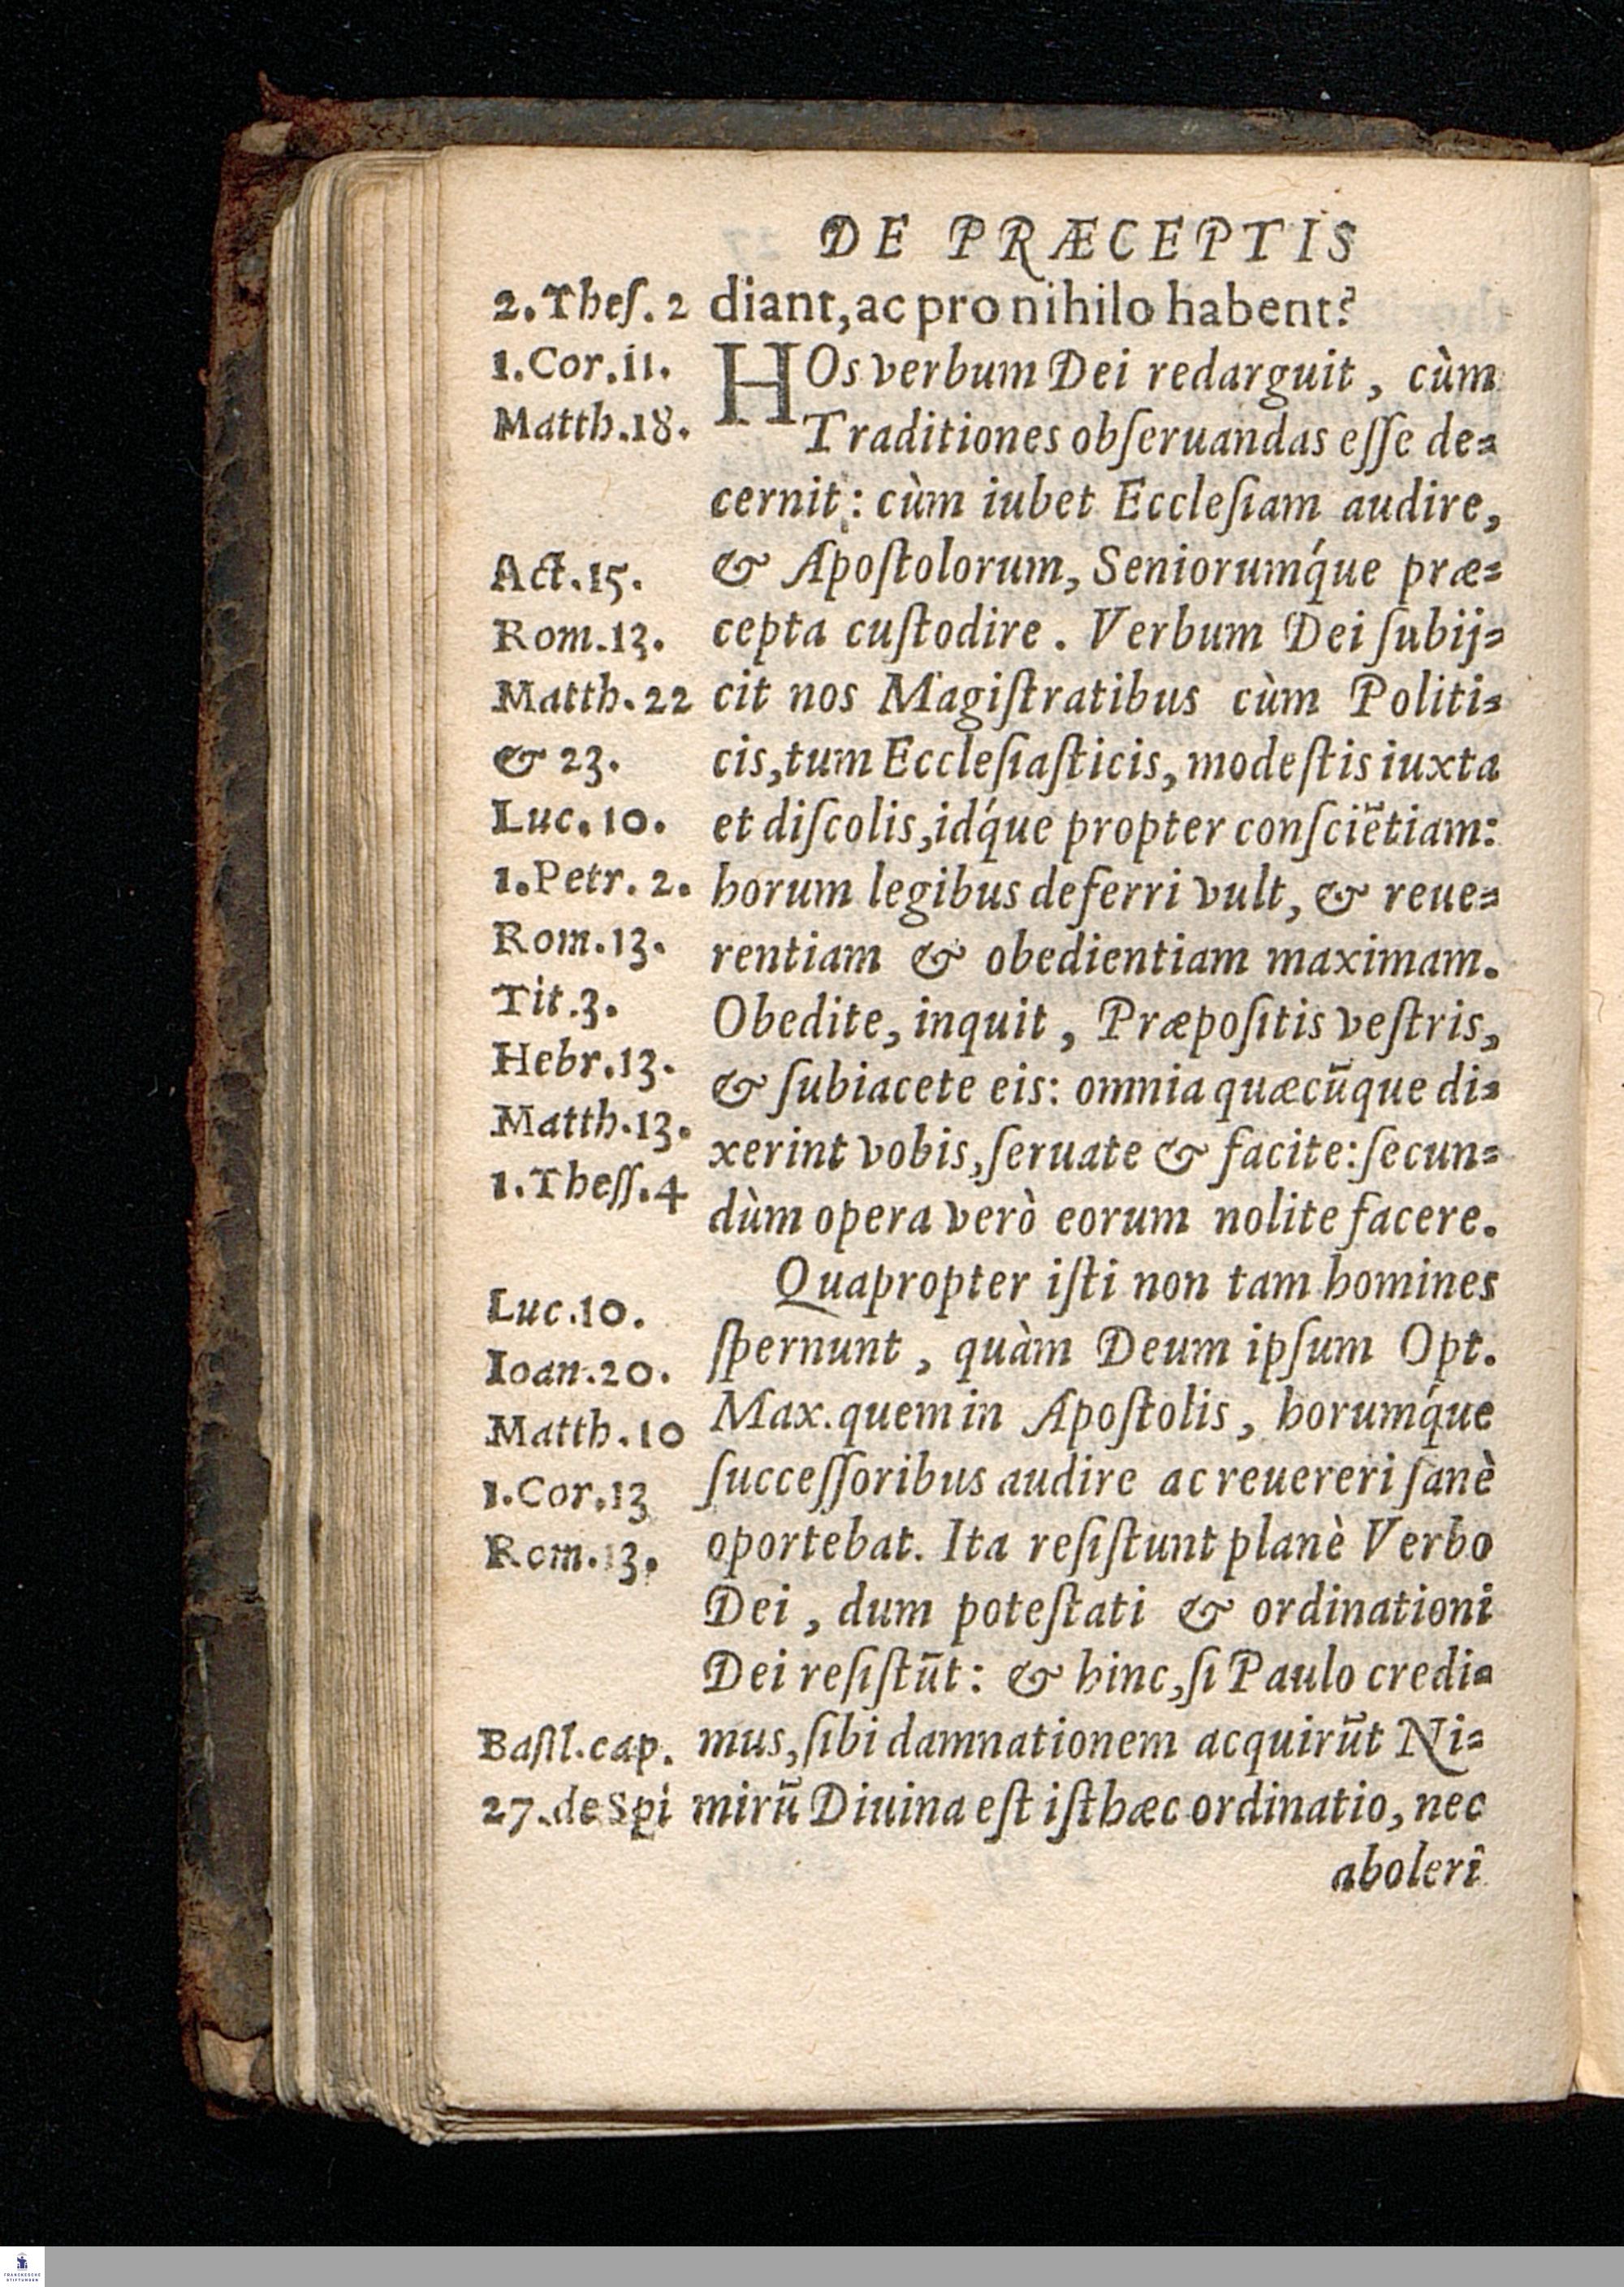 DE PRÆCEPTIS
2.Theſ. 2
1.Cor.11.
Matth.18.
Act.15.
Rom.13.
Matth.22
& 23.
Luc.10.
1.Petr. 2.
Rom.13.
Tit.3.
Hebr.13.
Matth.13.
1.Theſſ.4
Luc.10.
Ioan.20.
Matth.10
1.Cor.13
Rom.13.
Baſil.cap.
27.de Spi
diant, ac pro nihilo habent?
HOs verbum Dei redarguit, cùm
Traditiones obſeruandas eſſe de=
cernit: cùm iubet Eccleſiam audire,
& Apoſtolorum, Seniorumq́ue præ=
cepta cuſtodire. Verbum Dei ſubij=
cit nos Magiſtratibus cùm Politi=
cis, tum Eccleſiaſticis, modeſtis iuxta
et diſcolis, idq́ue propter conſciẽtiam:
horum legibus deferri vult, & reue=
rentiam & obedientiam maximam.
Obedite, inquit, Præpoſitis veſtris,
& ſubiacete eis: omnia quæcũque di=
xerint vobis, ſeruate & facite: ſecun=
dùm opera verò eorum nolite facere.
Quapropter iſti non tam homines
ſpernunt, quàm Deum ipſum Opt.
Max. quem in Apoſtolis, horumq́ue
ſucceſſoribus audire ac reuereri ſanè
oportebat. Ita reſiſtunt planè Verbo
Dei, dum poteſtati & ordinationi
Dei reſiſtũt: & hinc, ſi Paulo credi=
mus, ſibi damnationem acquirũt Ni=
mirũ Diuina eſt iſthæc ordinatio, nec
aboleri
FRANCKESCHE
STIFTUNGEN